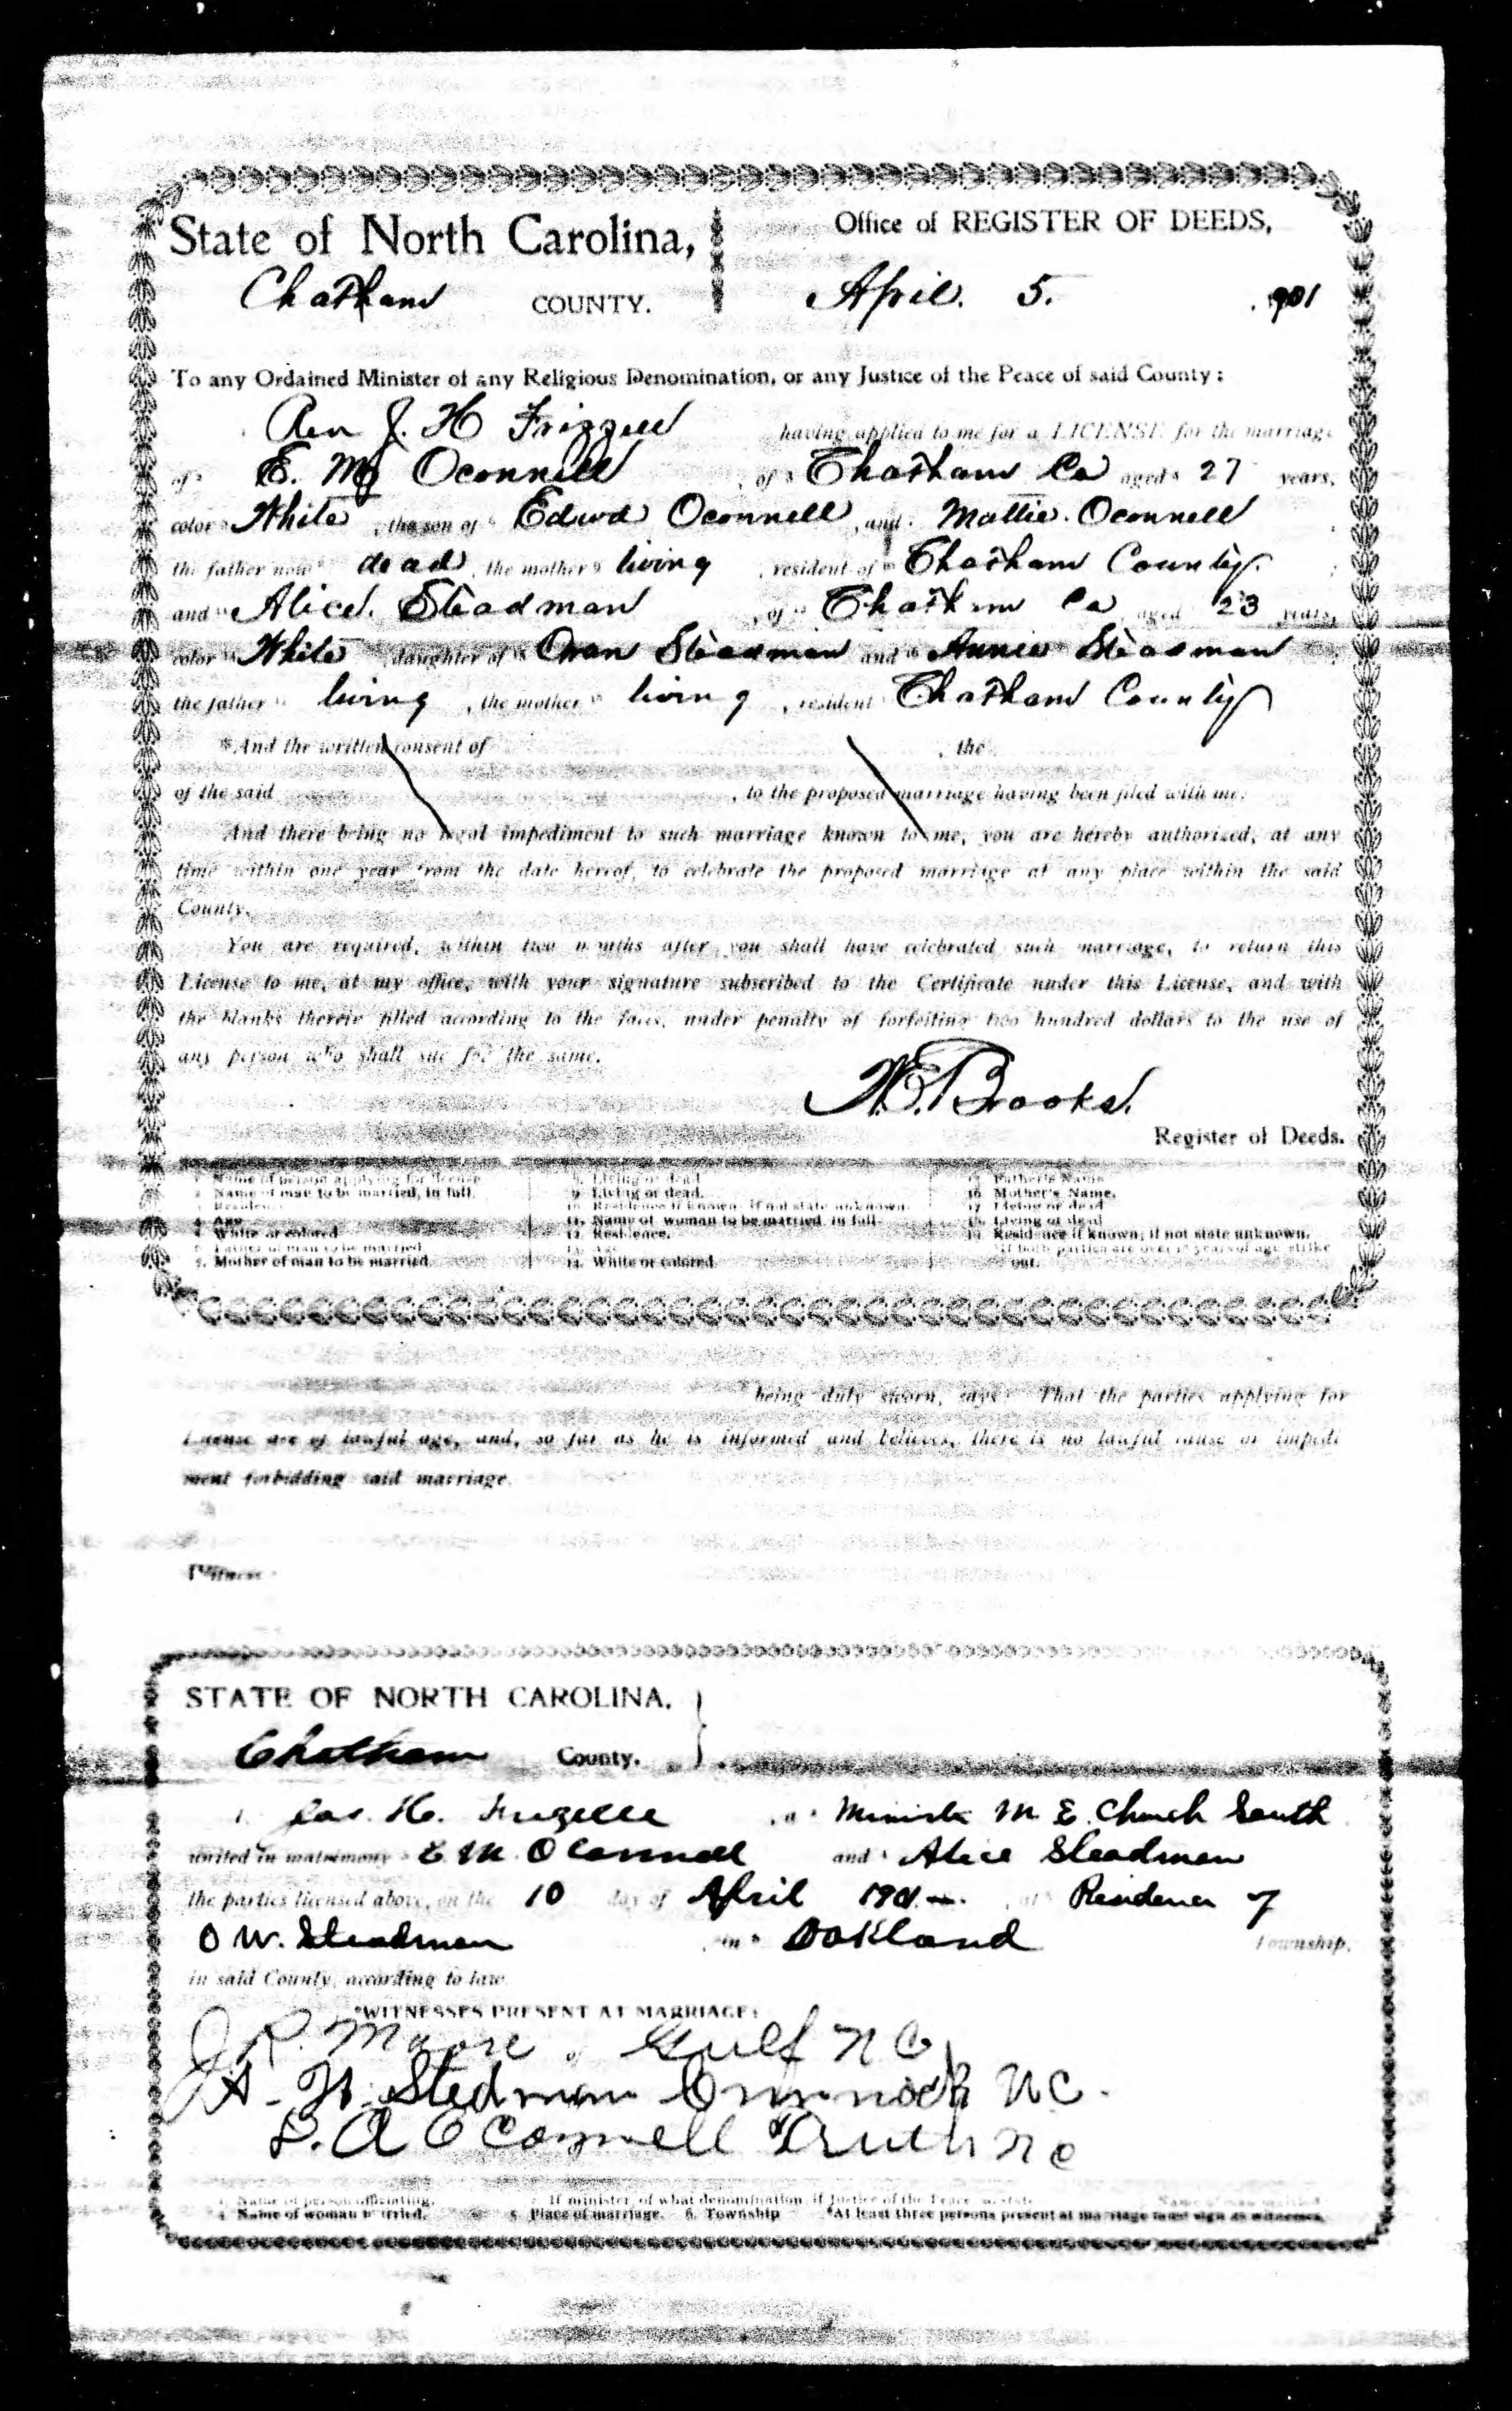 State of North Carolina,
Chatham COUNTY.
Office of REGISTER OF DEEDS,
April. 5. 1901
To any Ordained Minister of any Religious Denomination, or any Justice of the Peace of said County:
Rev J. H Frizzell having applied to me for a LICENSE for the marriage
of E. M Oconnell, of Chatham Co aged 27 years,
color White, the son of Edwd Oconnell, and Mattie. Oconnell
the father now dead, the mother living, resident of Chatham County.
and Alice. Steadman, of Chatham Co aged 23 years,
color White daughter of Oran Steadman and Annie Steadman
the father living, the mother living, resident Chatham County
*And the written consent of, the
of the said, to the proposed marriage having been filed with me.
And there being no legal impediment to such marriage known to me, you are hereby authorized, at any
time within one year from the date hereof, to celebrate the proposed marriage at any place within the said
County.
You are required, within two months after you shall have celebrated such marriage, to return this
License to me, at my office, with your signature subscribed to the Certificate under this License, and with
the blanks therein filled according to the facts, under penalty of forfeiting two hundred dollars to the use of
any person who shall sue for the same.
W.E. Brooks.
Register of Deeds.
1. Name of person applying for license
2. Name of man to be married, in full.
3. Residence
4. Age
5. White or colored
6. Father of man to be married
7. Mother of man to be married.
8. Living or dead
9. Living or dead.
10. Residence if known, if not state unknown.
11. Name of woman to be married, in full.
12. Residence.
13. Age
14. White or colored.
15. Father's Name
16. Mother's Name.
17. Living or dead
18. Living or dead
19. Residence if known; if not state unknown.
*If both parties are over 18 years of age strike
out.
being duly sworn, says: That the parties applying for
License are of lawful age, and, so far as he is informed and believes, there is no lawful cause or impedi
ment forbidding said marriage.
Witness
STATE OF NORTH CAROLINA,
Chatham County.
I, Jas. H. Frizelle, a Minister M. E. Church South
united in matrimony E M O Connell and Alice Steadman
the parties licensed above, on the 10 day of April 1901, at Residence of
O W. Steadman, in Oakland Township,
in said County, according to law
*WITNESSES PRESENT AT MARRIAGE:
J R. Moore, Gulf N C
A. W. Stedman Cumnock N C.
S. A O Connell Truth N C
1. Name of person officiating.
2. If minister, of what denomination, if Justice of the Peace so state
3. Name of man married
4. Name of woman married.
5. Place of marriage.
6. Township
*At least three persons present at marriage must sign as witnesses.